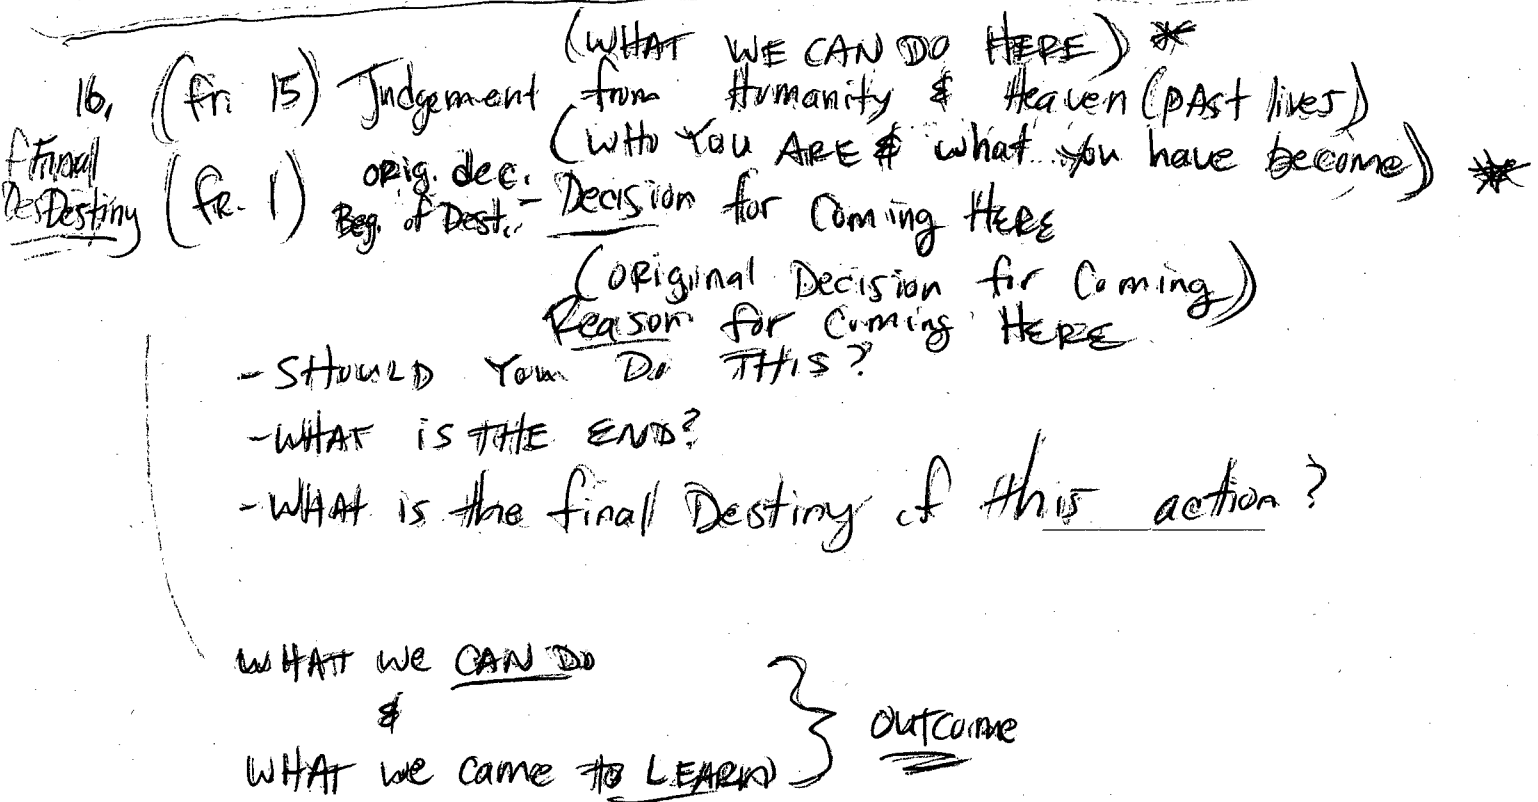 (WHAT WE CAN DO HERE) *
16. (fr. 15) Judgement from Humanity & Heaven (PAst lives)
(WHO YOU ARE & what you have become) *
Final Destiny (fr. 1) orig. dec. Beg. of Dest. - Decision for Coming HERE
(original Decision for Coming)
Reason for Coming HERE
- SHOULD You Do THIS?
- WHAT is THE END?
- WHAt is the final Destiny of this action?
WHAT we CAN DO
&
WHAT we came to LEARN } outcome